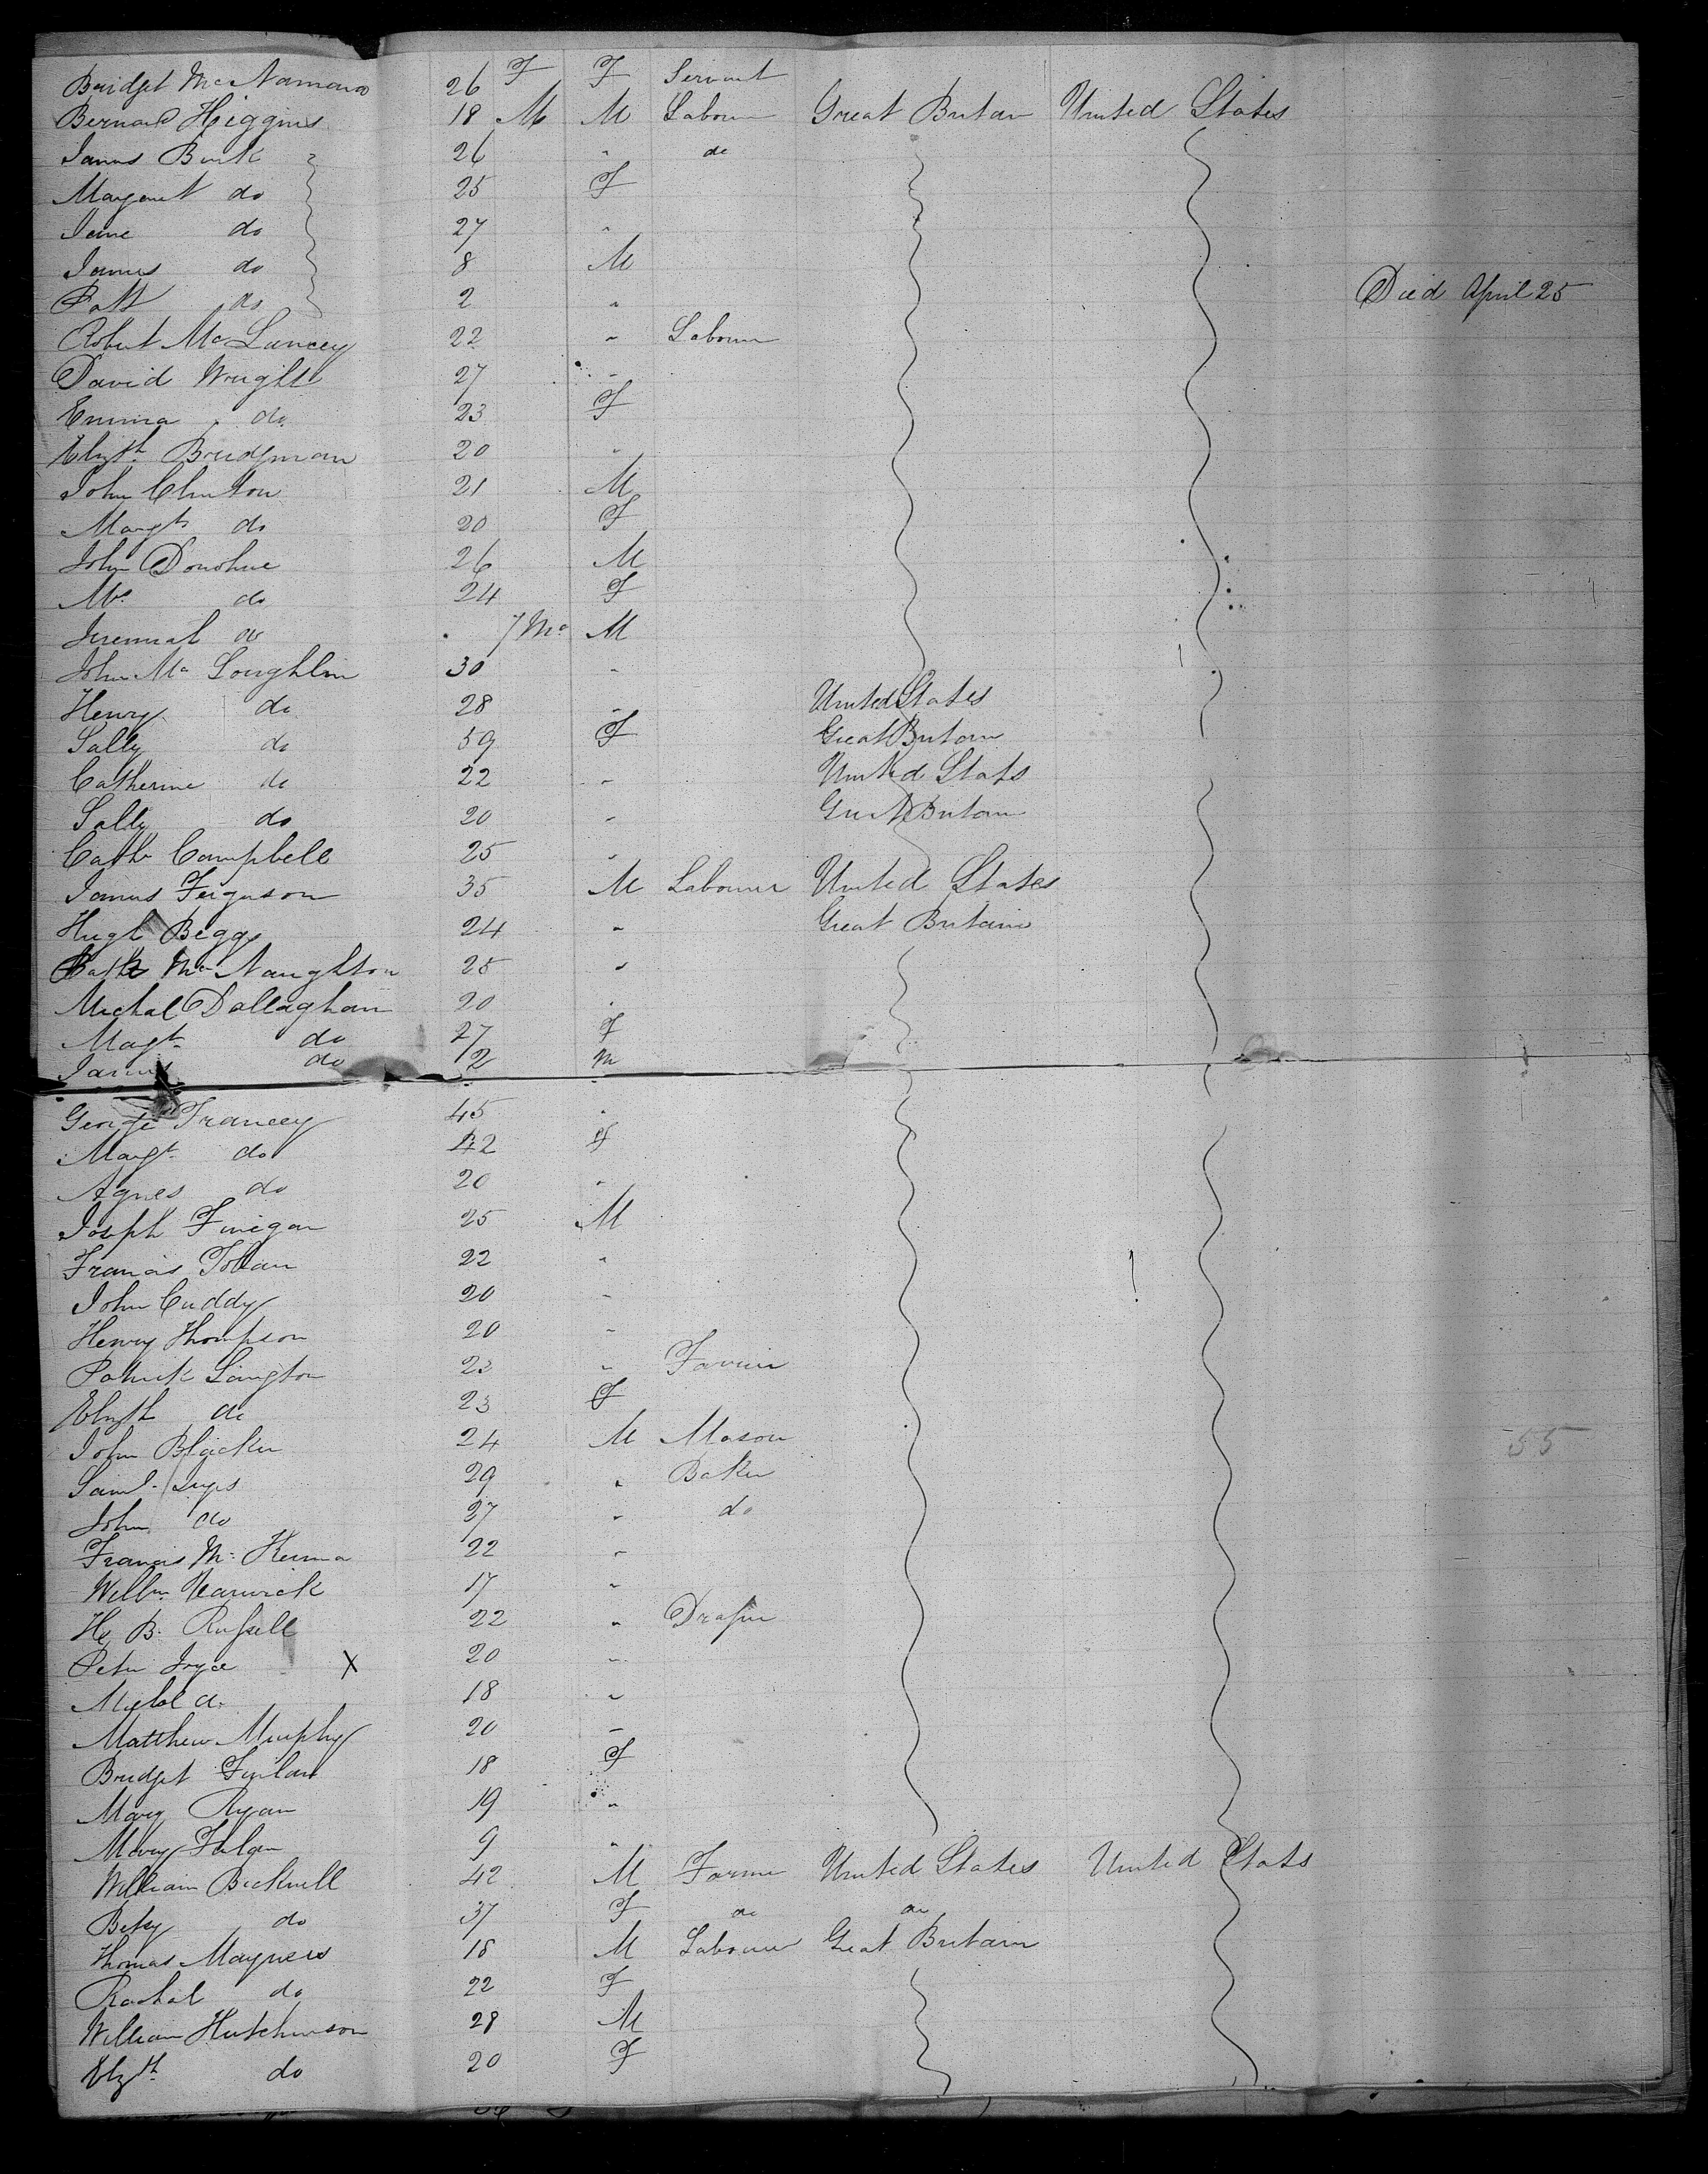 Bridget McNamara 26 F F Servant
Bernard Higgins 18 M M Labour Great Britan United States
James Burk 26 " do
Margaret do 25 F
Jane do 27 "
James do 8 M
Patt do 2 " Died April 25
Robert McLuncey 22 " Labour
David Wright 27 "
Emma do 23 F
Elizth Bridgman 20 "
John Clinton 21 M
Margt do 20 F
John Donohue 26 M
Mrs do 24 F
Jeremiah do 7 Mo M
John Mc Loughlin 30 "
Henry do 28 " United States
Sally do 59 F Great Britain
Catherine do 22 " United Stats
Sally do 20 " Great Britain
Cath Campbell 25 "
James Ferguson 35 M Labourer United States
Hugh Beggs 24 " Great Britain
Mc Naughton 25 "
Michal Dallaghan 20 "
Magt do 27 F
James do 2 M
George Francey 45 "
Margt do 42 F
Agnes do 20 "
Joseph Finegan 25 M
Francis 22 "
John Cuddy 20 "
Henry Thompson 20 "
Patrick Langton 23 " Farrier
Elizth do 23 F
John Blacker 24 M Mason 55
Saml. 29 " Baker
John do 27 " do
Francis Mc Kenna 22 "
Willm. Warwick 17 "
H. B. Russell 22 " Draper
Peter Joyce X 20 "
Michl do 18 "
Matthew Murphy 20 "
Bridget 18 F
Mary Ryan 19 "
Mary 9 "
William Bicknell 42 M Farmer United States United Stats
Betsy do 37 F do do
Thomas Magners 18 M Labourer Great Britain
Rachal do 22 F
William Hutchinson 28 M
Elzth do 20 F